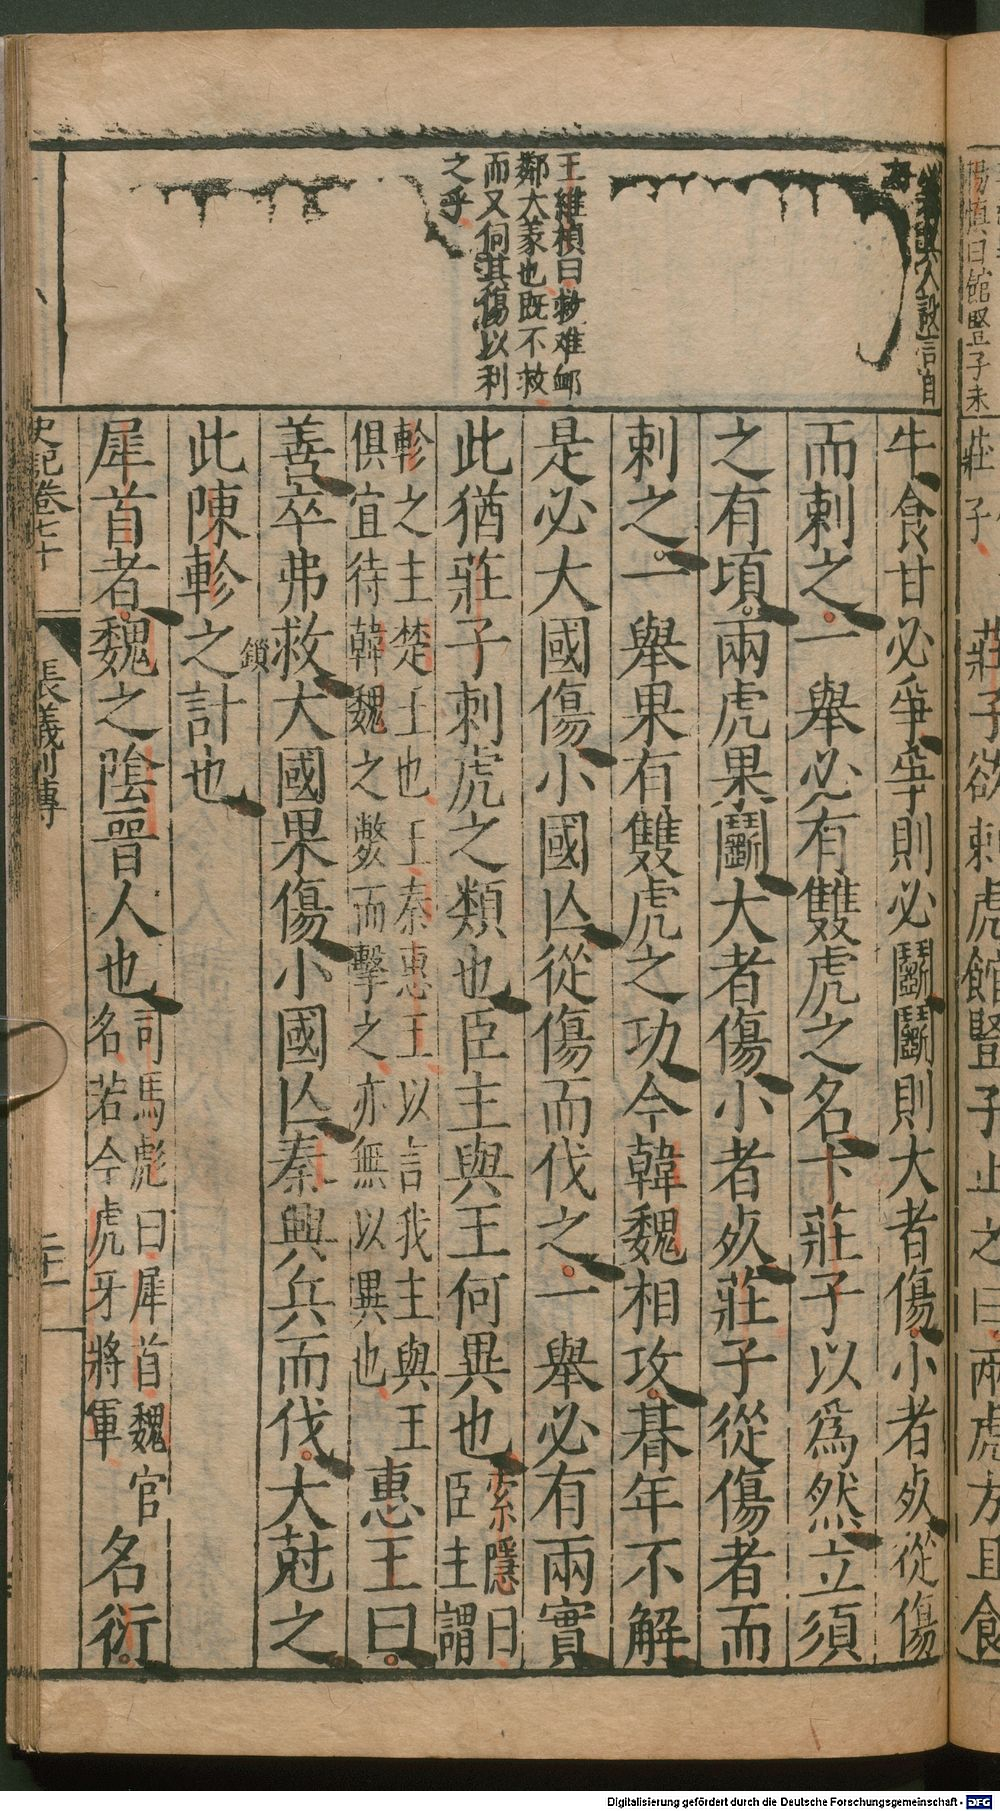 莊子欲刺虎館豎子止之曰兩虎方且食
牛食甘必爭爭則必鬭鬭則大者傷小者死從傷
而刺之一舉必有雙虎之名卞莊子以爲然立須
之有頃兩虎果鬭大者傷小者死莊子從傷者而
刺之一舉果有雙虎之功今韓魏相攻朞年不解
是必大國傷小國亾從傷而伐之一舉必有兩實
此猶莊子刺虎之類也臣主與王何異也
索隱曰
臣主謂
軫之主楚王也王秦惠王以言我主與王
俱宜待韓魏之斃而擊之亦無以異也
惠王曰
善卒弗救大國果傷小國亾秦興兵而伐大尅之
此陳軫之計也
鎖
犀首者魏之陰晉人也
司馬彪曰犀首魏官
名若今虎牙將軍
名衍
史記卷七十
張儀列傳
王維楨曰救难卹
鄰大義也既不救
而又伺其傷以利
之乎
楊慎曰館豎子未
Digitalisierung gefördert durch die Deutsche Forschungsgemeinschaft - DFG